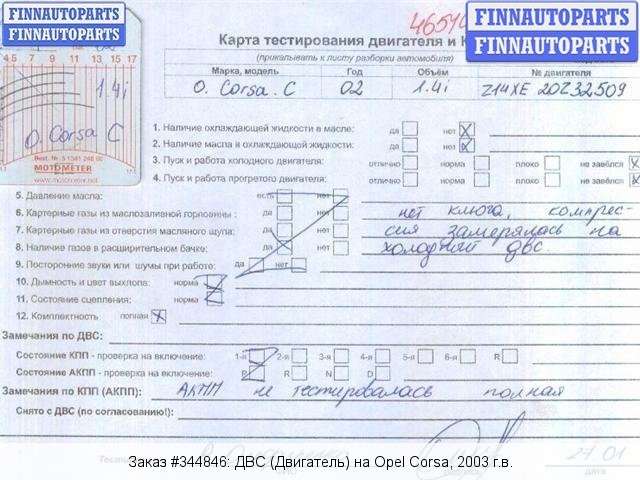 FINNAUTOPARTS
FINNAUTOPARTS
FINNAUTOPARTS
FINNAUTOPARTS
4 5 7 9 11 13 15 17
1.4i
O. Corsa C
MOTOMETER
www.motometer.net
Карта тестирования двигателя и К
(прикалывать к листу разборки автомобиля)
Марка, модель Год Объём № двигателя
O. Corsa. C 02 1.4i Z14XE 20Z32509
1. Наличие охлаждающей жидкости в масле: да нет
2. Наличие масла в охлаждающей жидкости: да нет
3. Пуск и работа холодного двигателя: отлично норма плохо не завёлся
4. Пуск и работа прогретого двигателя: отлично норма плохо не завёлся
5. Давление масла: есть нет
6. Картерные газы из маслозаливной горловины : да нет нет ключа, компрес-
7. Картерные газы из отверстия масляного щупа: да нет сия замерялась на
8. Наличие газов в расширительном бачке: да нет холодный двс
9. Посторонние звуки или шумы при работе: да нет
10. Дымность и цвет выхлопа: норма
11. Состояние сцепления: норма
12. Комплектность полная
Замечания по ДВС:
Состояние КПП - проверка на включение: 1-я 2-я 3-я 4-я 5-я 6-я R
Состояние АКПП - проверка на включение: P R N D
Замечания по КПП (АКПП): АКПП не тестировалась полная
Снято с ДВС (по согласованию!):
27 01
Заказ #344846: ДВС (Двигатель) на Opel Corsa, 2003 г.в.